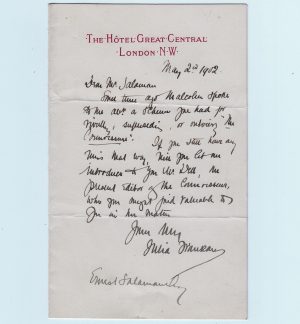 THE HÔTEL GREAT CENTRAL
LONDON N·W·
May 2nd 1912
Dear Mr Salaman
Some time ago Malcolm spoke
to me abt a scheme you had for
rivalling, superseding, or outvying "The
Connoisseur". If you still have any
that way, will you let me
introduce to you Mr Dell, the
present Editor of The Connoisseur,
who you might find valuable to
you in the matter
Yours truly
Julia Frankau
Ernest Salaman Esq